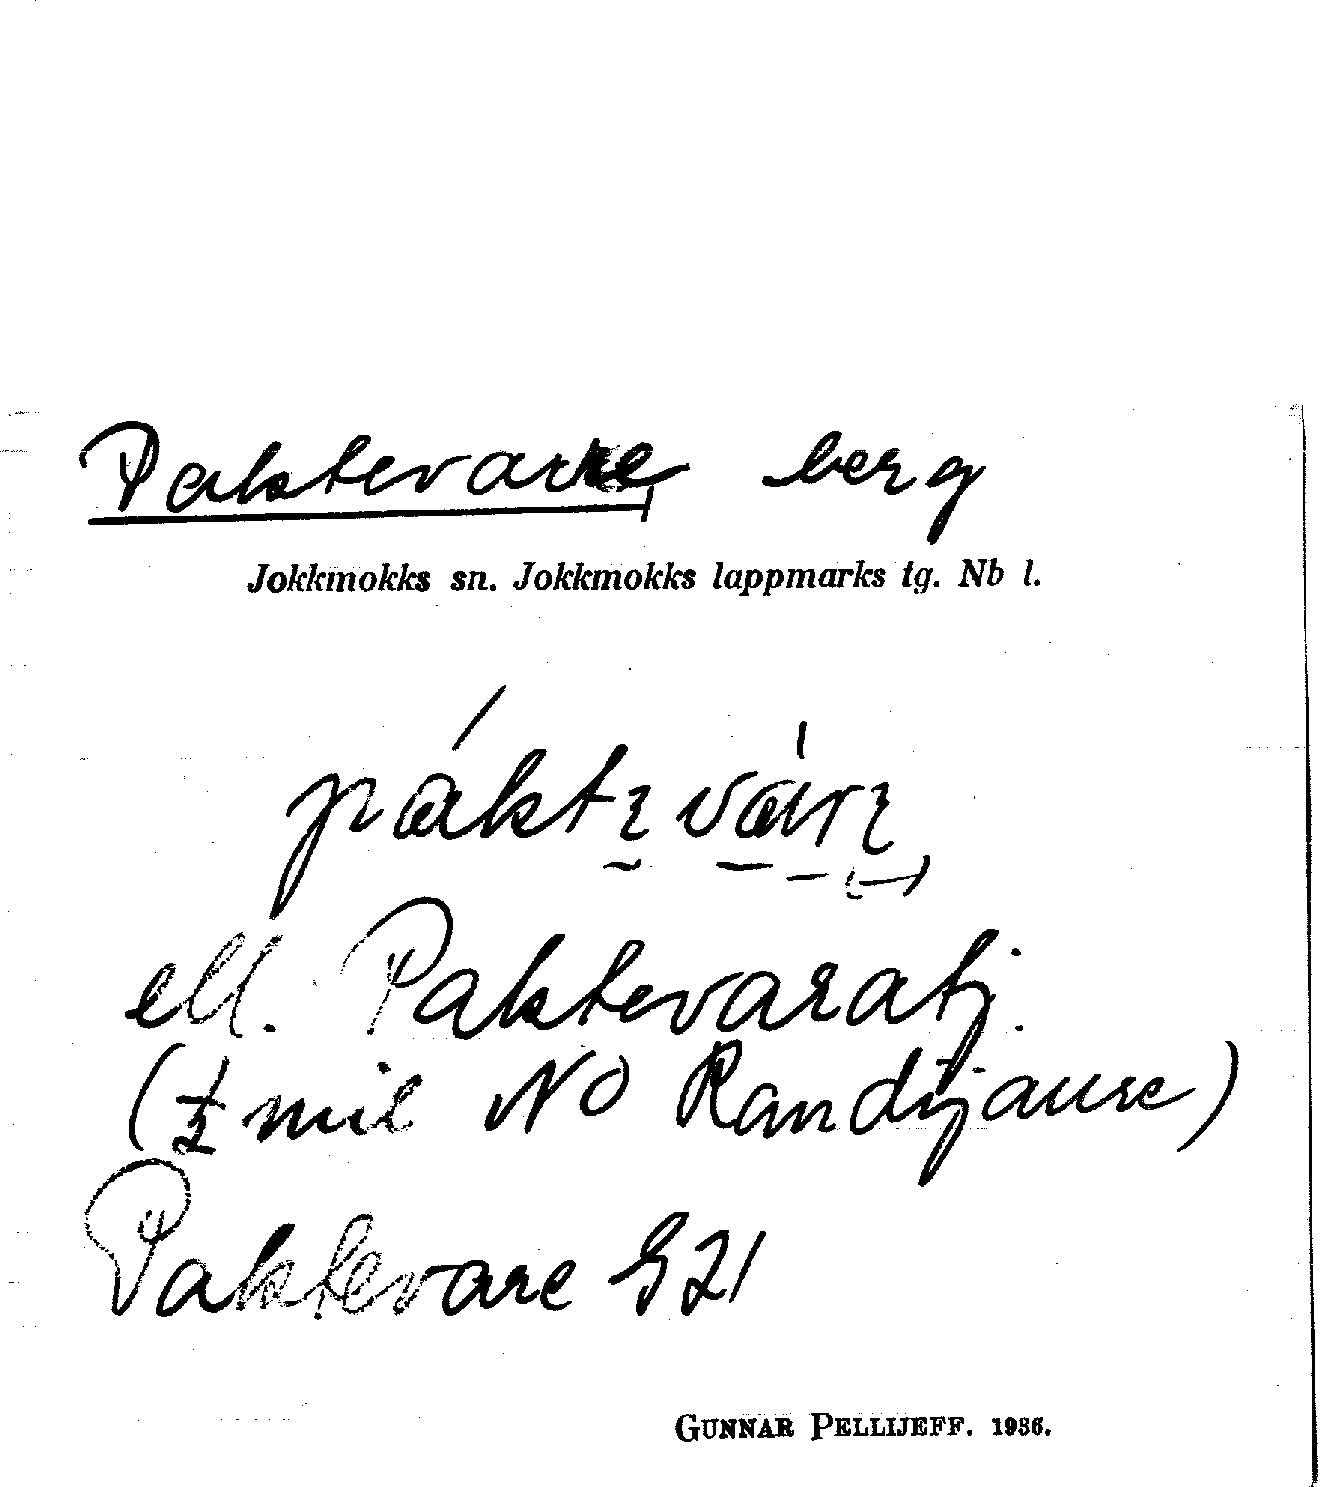 Paktevare, berg
Jokkmokks sn. Jokkmokks lappmarks tg. Nb l.
ell. Paktevaratj.
(½ mil NO Randijaure)
Paktevare G21
GUNNAR PELLIJEFF. 1936.